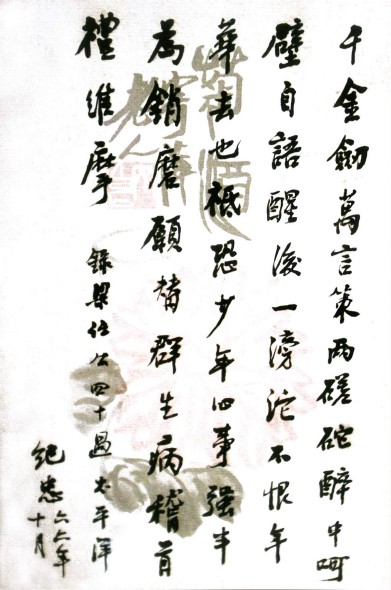 千金劍萬言策兩磋砣醉中呵
壁自語醒後一滂沱不恨年
華去也祗恐少年心事強半
為銷磨願替群生病稽首
禮維摩 錄梁任公四十過太平洋
紀忠 六六年
十月